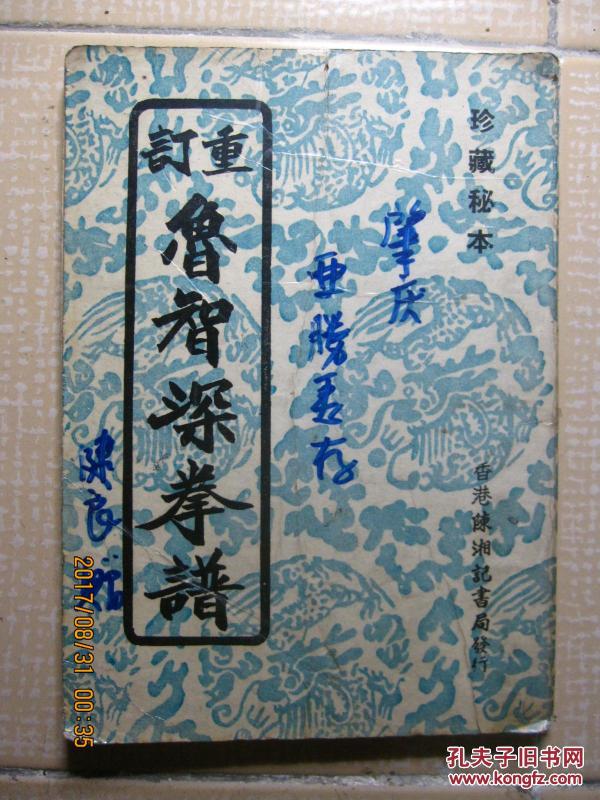 珍藏秘本
香港陳湘記書局發行
肇庆
亚勝吾存
重訂
魯智深拳譜
陳良
2017/08/31 00:35
孔夫子旧书网
www.kongfz.com